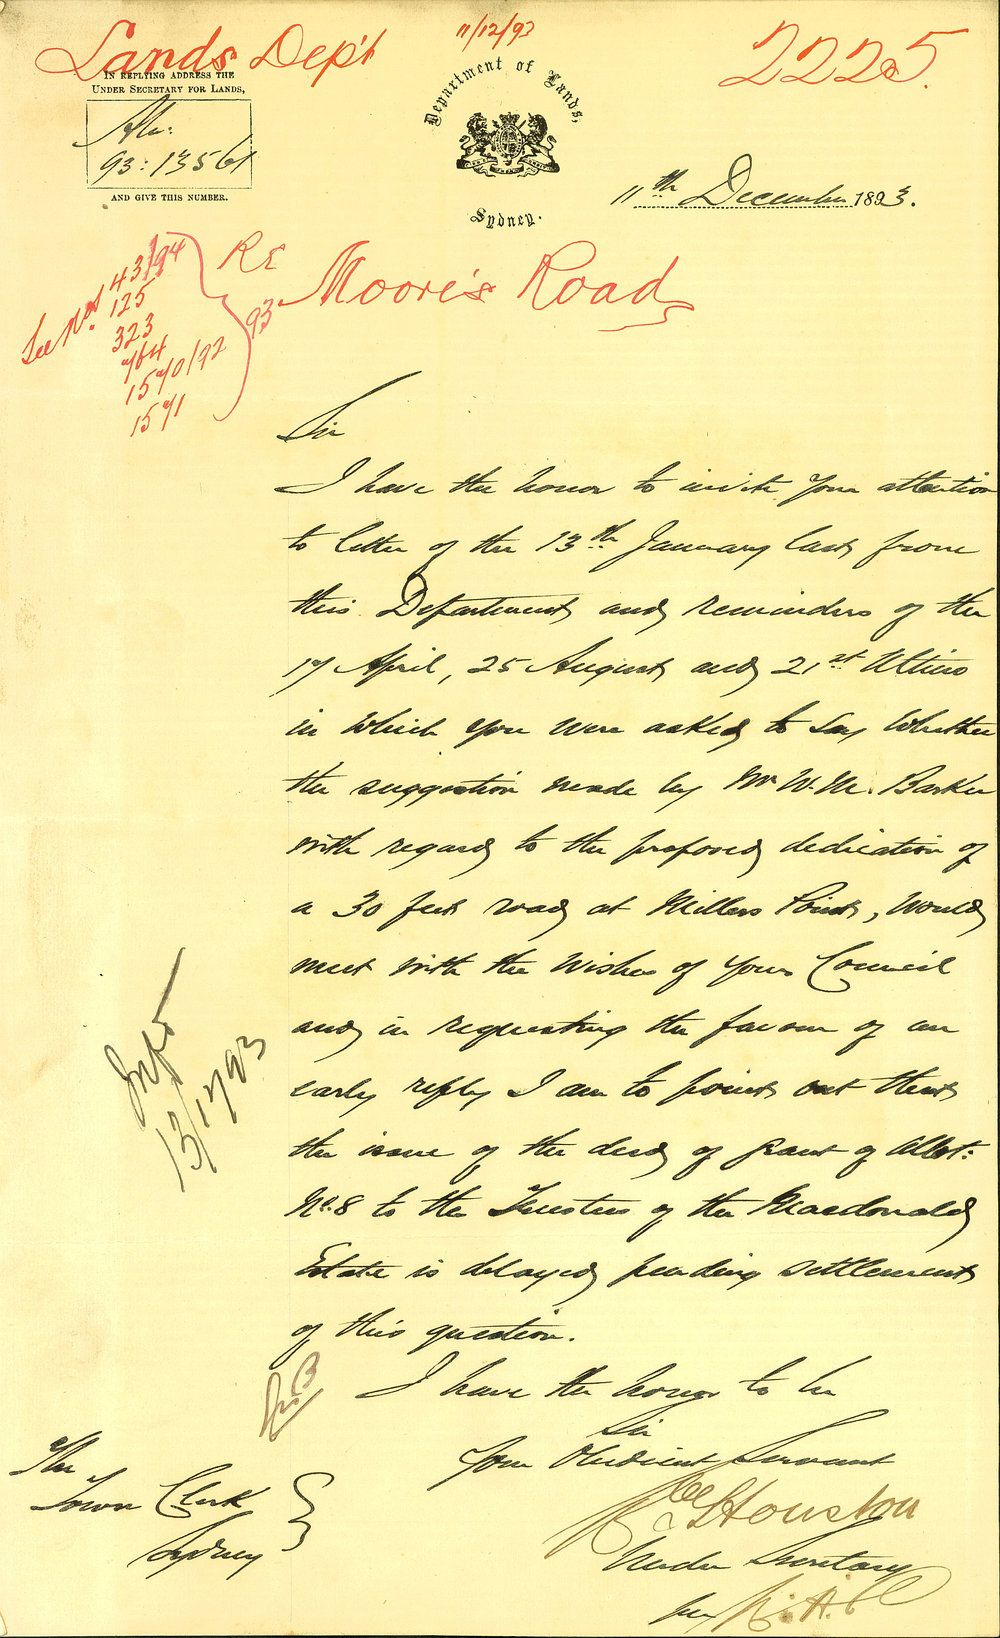 Lands Dep't
11/12/93
2225.
IN REPLYING ADDRESS THE
UNDER SECRETARY FOR LANDS,
Aln:
93:13561
AND GIVE THIS NUMBER.
Department of Lands,
Sydney.
11th December 1893.
See Nos. 43/94
125
323
764
1570/92
1571
93
RE
Moore's Road
Sir
I have the honor to invite your attention
to letter of the 13th January last from
this Department and reminders of the
17 April, 25 August and 21st Ultimo
in which you were asked to say whether
the suggestion made by Mr W. M. Barker
with regard to the proposed dedication of
a 30 feet road at Millers Point, would
meet with the wishes of your Council
and in requesting the favour of an
early reply I am to point out that
the issue of the deed of Grant of Allot:
No. 8 to the Trustees of the Macdonald
Estate is delayed pending settlement
of this question.
I have the honor to be
Sir
Your Obedient Servant
Houston
Under Secretary
per
13/12/93
The
Town Clerk
Sydney